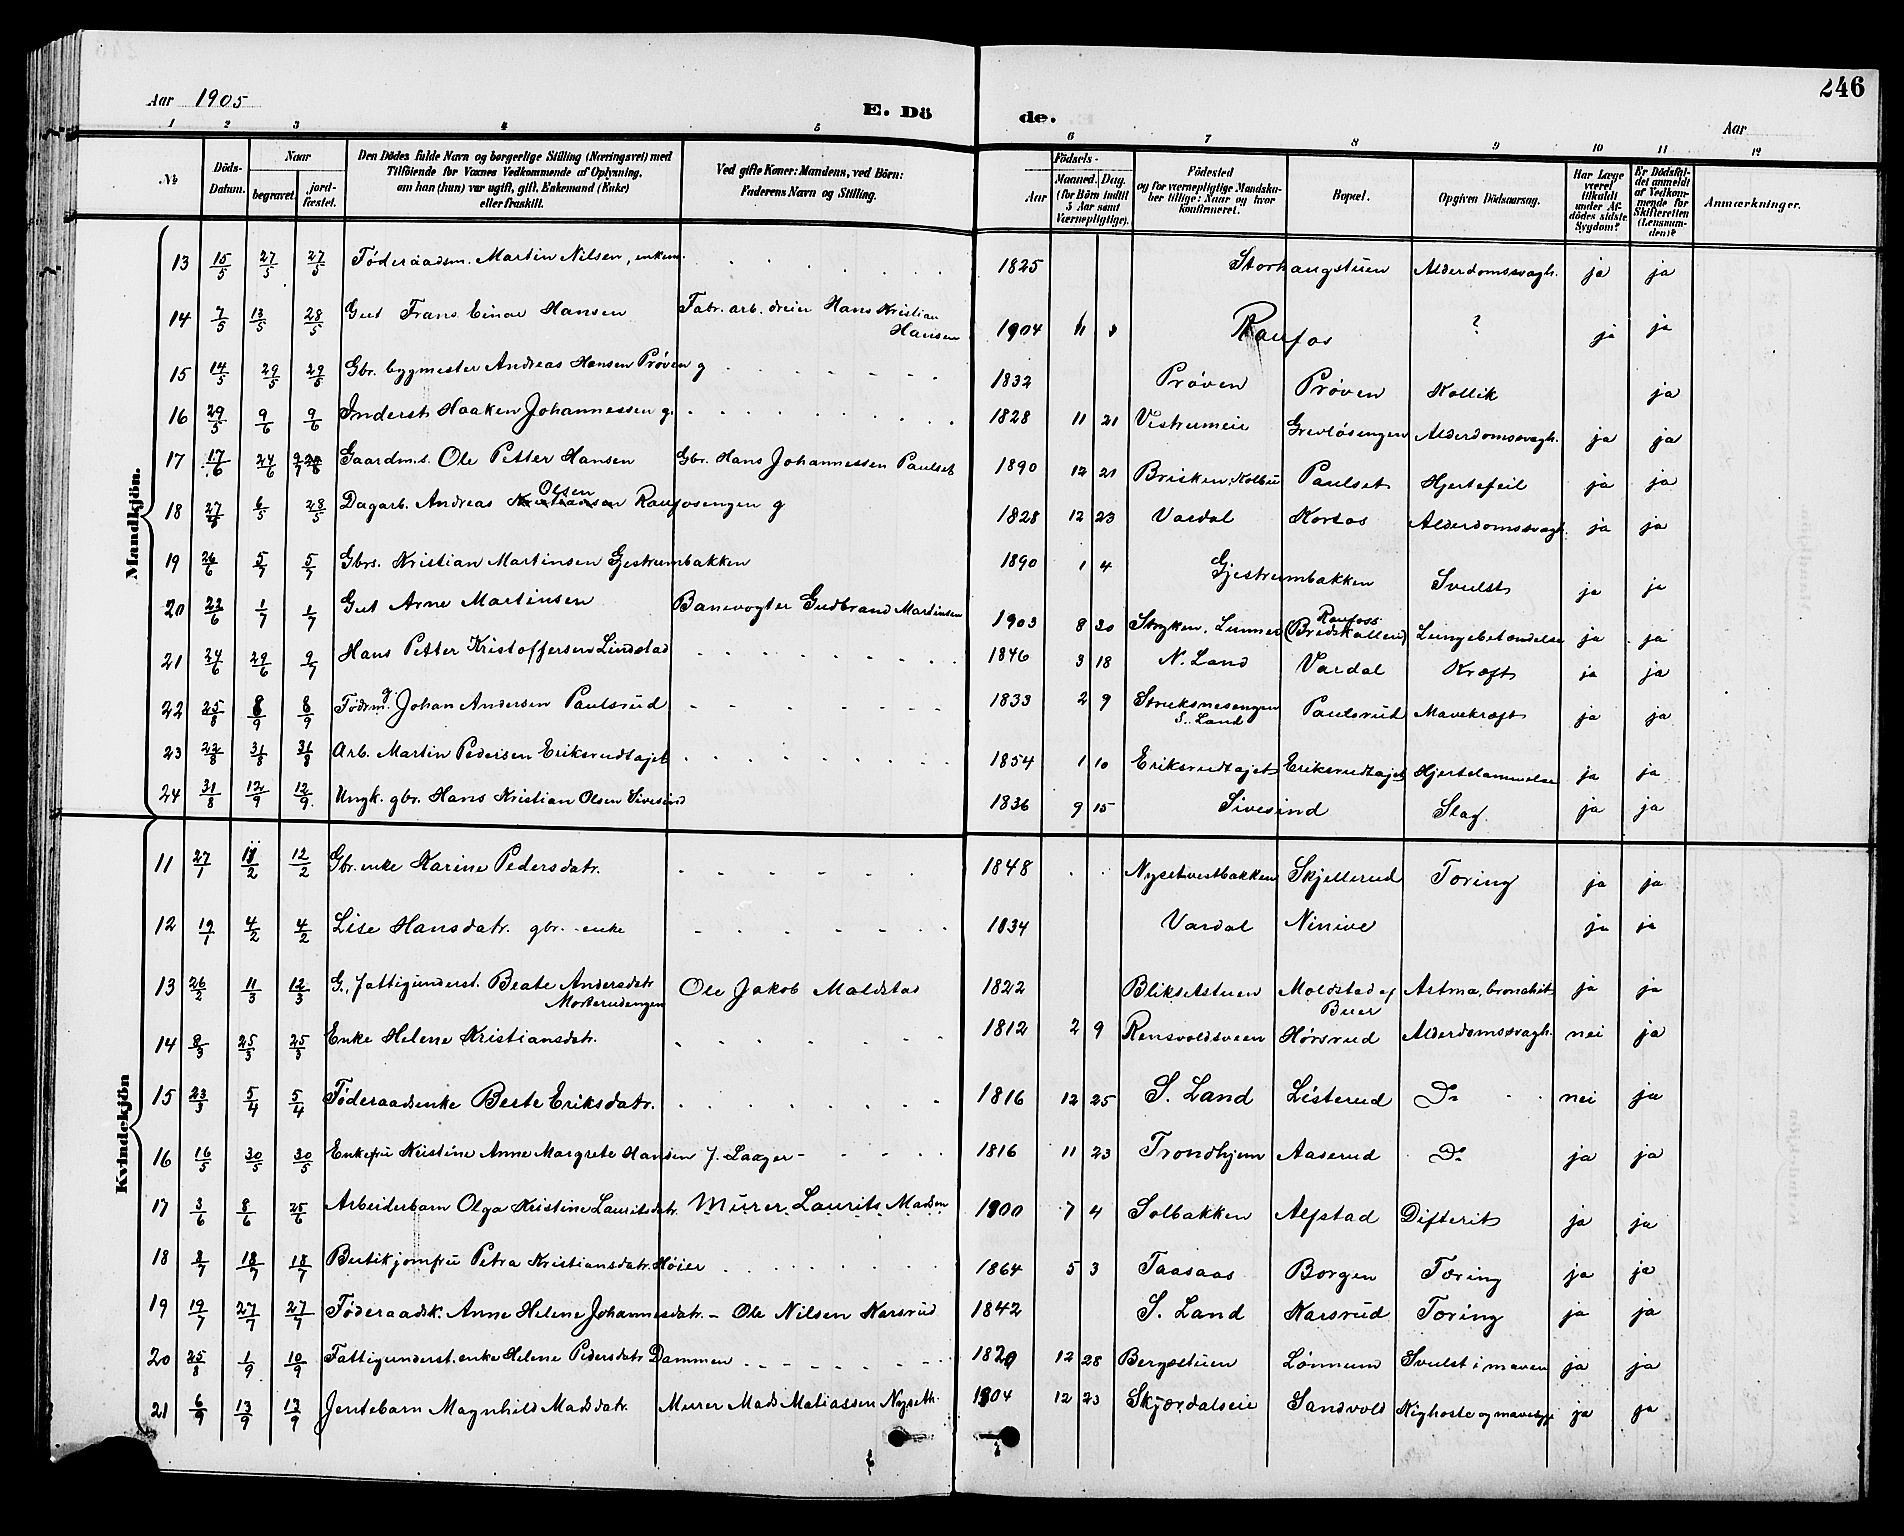 246
Aar 1905
E. Dö
de.
Aar
1 2 3 4 5 6 7 8 9 10 11 12
№
Döds-Datum.
Naar
begravet.
jord-fæstet.
Den Dödes fulde Navn og borgerlige Stilling (Næringsvei) med Tilföiende for Voxnes Vedkommende af Oplysning, om han (hun) var ugift, gift, Enkemand (Enke) eller fraskilt.
Ved gifte Koner: Mandens, ved Börn: Faderens Navn og Stilling.
Födsels-
Aar
Maaned. Dag.
(for Börn indtil 5 Aar samt Værnepligtige).
Födested
og for værnepligtige Mandskaber tillige: Naar og hvor konfirmeret.
Bopæl.
Opgiven Dödsaarsag.
Har Læge været tilkaldt under Afdödes sidste Sygdom?
Er Dödsfaldet anmeldt af Vedkommende for Skifteretten (Lensmanden)?
Anmærkninger.
Mandkjön.
13 15/5 27/5 27/5 Föderaadsm. Martin Nilsen, enkem. 1825 Storhaugstuen Alderdomssvagh. ja ja
14 7/5 13/5 28/5 Gut Frans Einar Hansen Fabr. arb. dreier Hans Kristian Hansen 1904 Raufos ? ja ja
15 14/5 29/5 29/5 Gbr. bygmester Andreas Hansen Prøven g 1832 Prøven Prøven Kollik ja
16 29/5 9/6 9/6 Inderst Haaken Johannessen g. 1828 11 21 Vestrumeie Grevlösengen Alderdomssvagh. ja ja
17 17/6 24/6 Gaardm.s. Ole Petter Hansen Gbr. Hans Johannessen Paulset 1890 12 21 Brisken, Kolbu Paulset Hjertefeil ja ja
18 6/5 28/5 Dagarb. Andreas Olsen Raufosengen g 1828 12 23 Vardal Kortos Alderdomssvagh. ja ja
19 26/6 5/7 5/7 Gbrs. Kristian Martinsen Gjestrumbakken 1890 1 4 Gjestrumbakken Svulst ja ja
20 22/6 1/7 1/7 Gut Arne Martinsen Banevogter Gudbrand Martinsen 1903 8 30 Stryken, Lunner Raufoss (Bredskallerud) Lungebetændelse ja ja
21 24/6 29/6 9/7 Hans Petter Kristoffersen Lindstad 1846 3 18 N. Land Vardal Kræft ja ja
22 25/8 8/9 8/9 Födrm. g. Johan Andersen Paulsrud 1833 2 9 Struksnesengen S. Land Paulsrud Mavekræft ja ja
23 22/8 31/8 31/8 Arb. Martin Pedersen Eriksrudtajet 1854 1 10 Eriksrudtajet Eriksrudtajet Hjertelammelse ja ja
24 31/8 12/9 12/9 Ungk. gbr. Hans Kristian Olsen Sivesind 1836 9 15 Sivesind Slag. ja ja
Kvindekjön
11 27/1 11/2 12/2 Gbr. enke Karine Pedersdatr. 1848 Nysetvestbakken Skjellerud Tæring ja ja
12 19/1 4/2 4/2 Lise Hansdatr. gbr. enke 1834 Vardal Ninive ja ja
13 26/2 11/3 12/3 G., fattigunderst. Beate Andersdatr. Morterudengen Ole Jakob Moldstad 1822 Blikset­stuen Moldstad af Buer Astma, bronchit ja ja
14 8/3 25/3 25/3 Enke Helene Kristiansdatr. 1812 2 9 Rensvoldsveen Hørsrud Alderdomssvagh. nei ja
15 23/3 5/4 5/4 Föderaadsenke Berte Eriksdatr. 1816 12 25 S. Land Listerud Do nei ja
16 16/5 30/5 30/5 Enkefru Kristine Anne Margrete Hansen f. Laager 1816 11 23 Trondhjem Aaserud Do ja ja
17 3/6 8/6 25/6 Arbeiderbarn Olga Kristine Lauritsdatr. Murer Laurits Madsen 1900 7 4 Solbakken Alfstad Difterit ja ja
18 8/7 18/7 18/7 Butikjomfru Petra Kristiansdatr. Höier 1864 5 3 Taasaas Borgen Tæring ja ja
19 19/7 27/7 27/7 Föderaadsk. Anne Helene Johannesdatr. – Ole Nilsen Karsrud 1842 S. Land Karsrud Tæring ja ja
20 25/8 1/9 10/9 Fattigunderst. enke Helene Pedersdatr. Dammen 1820 12 28 Bergstuen Lönnum Svulst i maven ja ja
21 6/9 13/9 17/9 Jentebarn Magnhild Madsdatr. Murer Mads Matiassen Nyseth 1904 12 23 Skjærdalseie Sandvold Kighoste og mavesyge ja ja